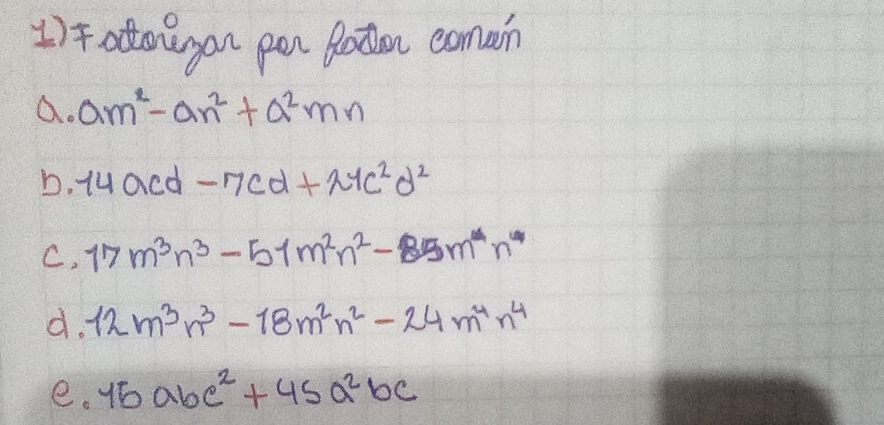 1) Factorizar por factor común
a. am² - an² + a²mn
b. 14acd - 7cd + 21c²d²
c. 17m³n³ - 51m²n² - 85m⁴n⁴
d. 12m³n³ - 18m²n² - 24m⁴n⁴
e. 15abc² + 45a²bc